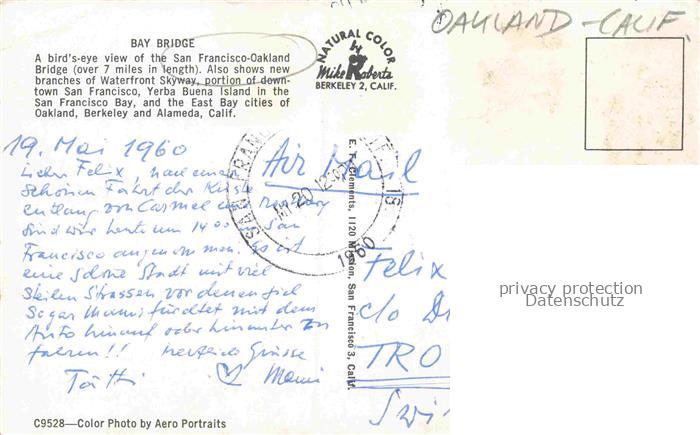 OAKLAND - CALIF.
BAY BRIDGE
A bird's-eye view of the San Francisco-Oakland
Bridge (over 7 miles in length). Also shows new
branches of Waterfront Skyway, portion of down-
town San Francisco, Yerba Buena Island in the
San Francisco Bay, and the East Bay cities of
Oakland, Berkeley and Alameda, Calif.
NATURAL COLOR
by
Mike Roberts
BERKELEY 2, CALIF.
19. Mai 1960
Lieber Felix, nach einer
schönen Fahrt der Küste
entlang von Carmel
sind wir heute um 14 00 San
Francisco angekommen. Es ist
eine schöne Stadt mit viel
steilen Strassen vor denen sich
sogar Mami fürchtet mit dem
Auto hinauf oder hinunter zu
fahren!! Herzliche Grüsse
Mami
Air Mail
SAN FRAN
MY 20
1960
E. F. Clements, 1120 Mission, San Francisco 3, Calif.
Felix
c/o Dr
TRO
Swi
privacy protection
Datenschutz
C9528—Color Photo by Aero Portraits